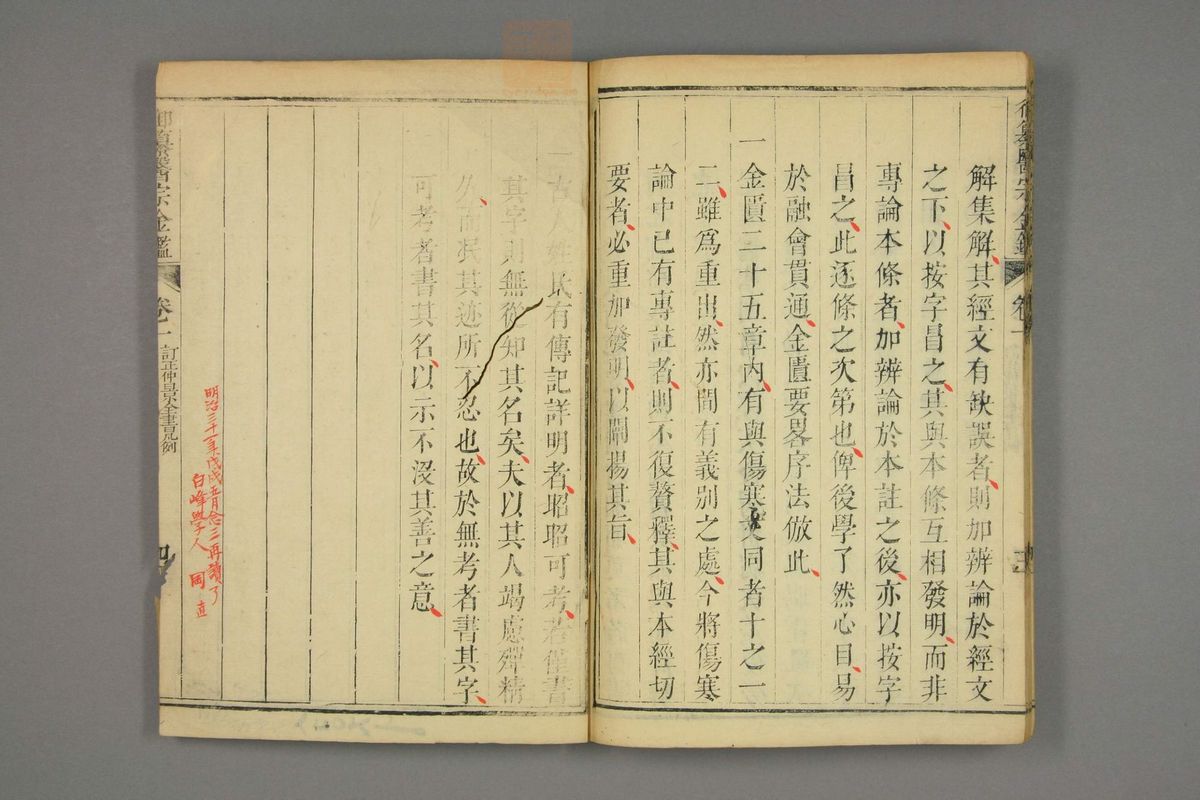 解集解其經文有缺誤者則加辨論於經文
之下以按字冒之其與本條互相發明而非
專論本條者加辨論於本註之後亦以按字
冒之此逐條之次第也俾後學了然心目易
於融會貫通金匱要畧序法倣此
一金匱二十五章內有與傷寒文同者十之一
二雖爲重出然亦間有義別之處今將傷寒
論中已有專註者則不復贅釋其與本經切
要者必重加發明以闡揚其旨
一古人姓氏有傳記詳明者昭昭可考若僅書
其字則無從知其名矣夫以其人竭慮殫精
久而泯其迹所不忍也故於無考者書其字
可考者書其名以示不沒其善之意
明治三十一年戊戌五月念三再讀了
白峰學人 岡 直
御纂醫宗金鑑
卷一
訂正仲景全書凡例